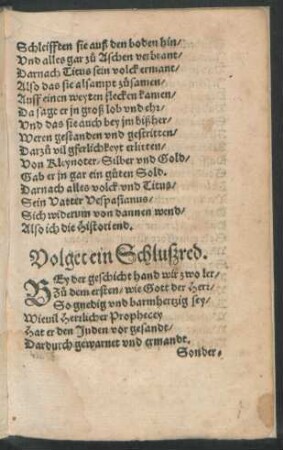 Schleifften sie auß den boden hin/
Und alles gar zů Aschen verbrant/
Darnach Titus sein volck ermant/
Also das sie alsampt zůsamen/
Auff einen weyten flecken kamen/
Da sagt er in groß lob vnd ehr/
Und das sie auch bey jm bißher/
Weren gestanden vnd gestritten/
Darzů vil gferlichkeyt erlitten/
Von Kleynoter/ Silber vnd Gold/
Gab er in gar ein gůten Sold.
Darnach alles volck vnd Titus/
Sein Vatter Vespasianus/
Sich widerum von dannen wend/
Also ich die Histori end.
Volget ein Schlußred.
BEy der geschicht hand wir zwo ler/
Zů dem ersten/ wie Gott der Herr/
So gnedig vnd barmhertzig sey/
Wieuil Herrlicher Prophecey
Hat er den Juden vor gesandt/
Dardurch gewarnet vnd ermandt.
Sonder-